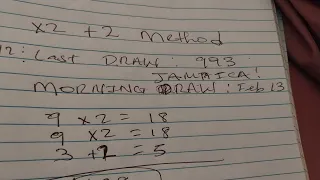 x2 +2 Method
Last DRAW: 993
JAMAICA!
MORNING DRAW: Feb 13
9 x2 = 18
9 x2 = 18
3 +2 = 5